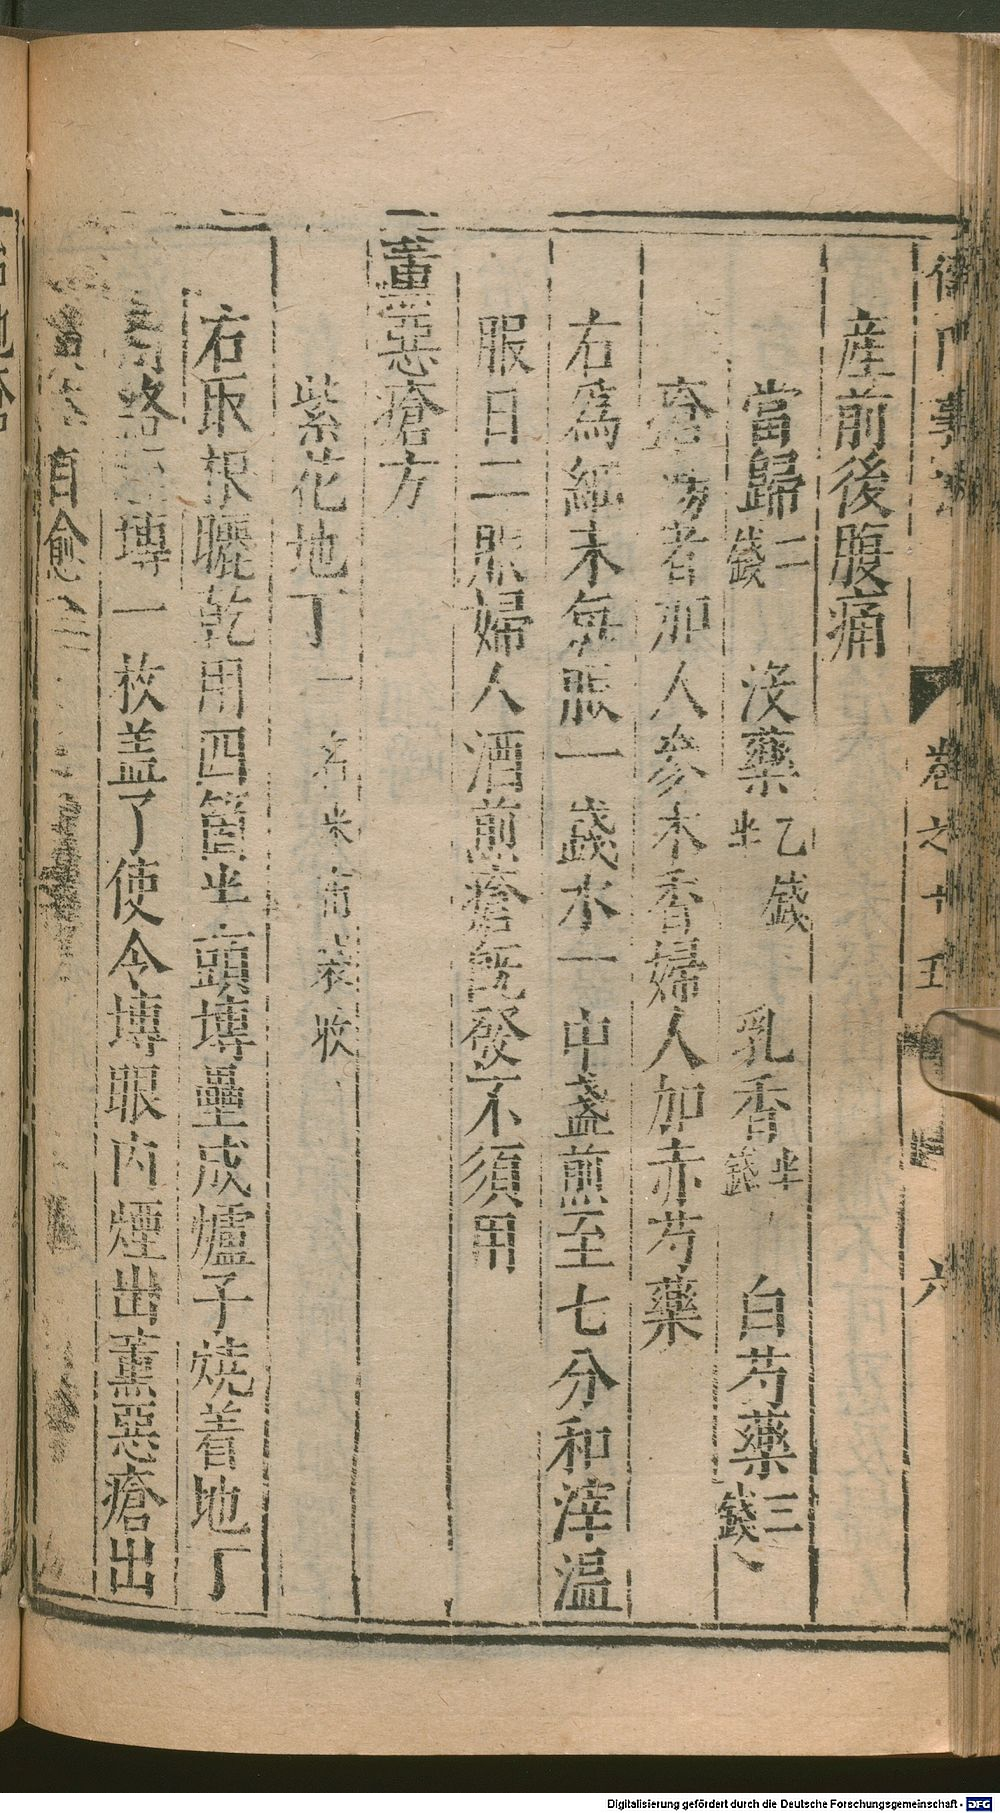 儒門事親 卷之十五 六
産前後腹痛
當歸二錢 沒藥乙錢半 乳香半錢 白芍藥三錢
瘡瘍者加人參木香婦人加赤芍藥
右爲細末每服一錢水一中盞煎至七分和滓温
服日二服婦人酒煎瘡既發不須用
薰惡瘡方
紫花地丁一名米布袋收
右取根曬乾用四箇半頭塼壘成爐子燒着地丁
塼一枚盖了使令塼眼内煙出薰惡瘡出
自愈
Digitalisierung gefördert durch die Deutsche Forschungsgemeinschaft - DFG